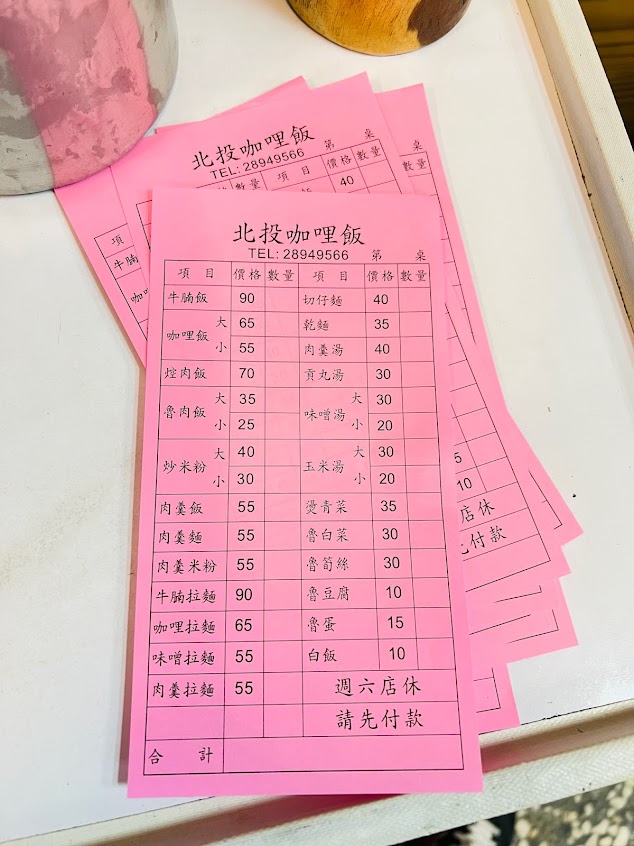 北投咖哩飯
TEL: 28949566 第 桌
數量 項目 價格 數量
40
桌
數量
項
牛腩
咖
北投咖哩飯
TEL: 28949566 第 桌
項目 價格 數量 項目 價格 數量
牛腩飯 90 切仔麵 40
咖哩飯 大 65 乾麵 35
小 55 肉羹湯 40
焢肉飯 70 貢丸湯 30
魯肉飯 大 35 味噌湯 大 30
小 25 小 20
炒米粉 大 40 玉米湯 大 30
小 30 小 20
肉羹飯 55 燙青菜 35
肉羹麵 55 魯白菜 30
肉羹米粉 55 魯筍絲 30
牛腩拉麵 90 魯豆腐 10
咖哩拉麵 65 魯蛋 15
味噌拉麵 55 白飯 10
肉羹拉麵 55 週六店休
請先付款
合計
5
10
店休
付款